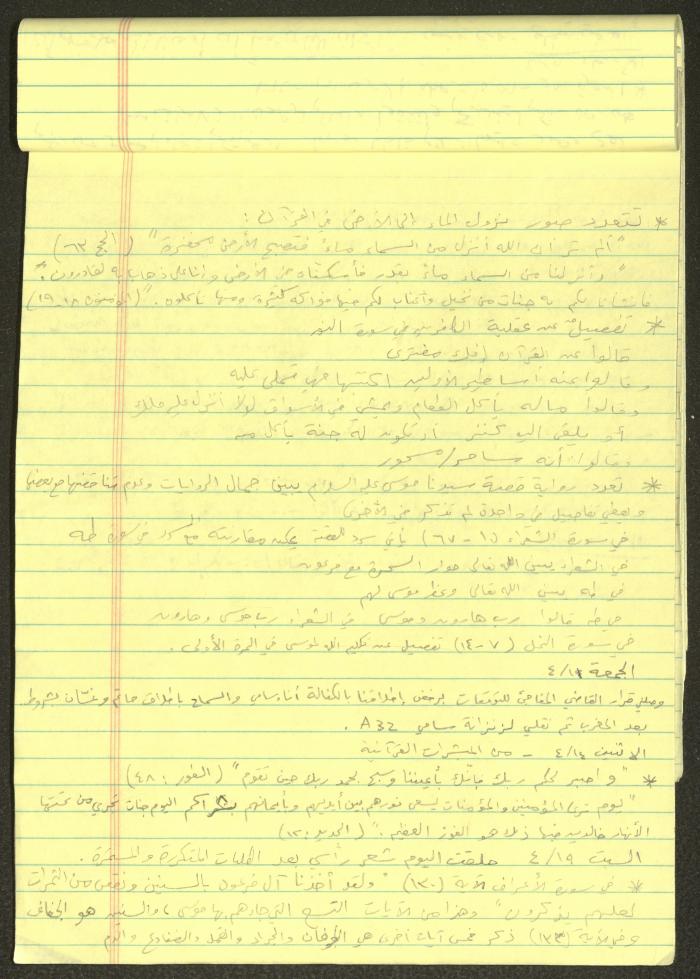 * تتعدد صور نزول الماء إلى الأرض في القرآن :
"ألم تر أن الله أنزل من السماء ماءً فتصبح الأرض مخضرة" (الحج ٦٣)
"وأنزلنا من السماء ماءً بقدر فأسكناه في الأرض وإنا على ذهاب به لقادرون.
فأنشأنا لكم به جنات من نخيل وأعناب لكم فيها فواكه كثيرة ومنها تأكلون." (المؤمنون ١٨-١٩)
* تفصيل عن عقلية الكافرين في سورة
قالوا عن القرآن إفك مفترى
وقالوا عنه أساطير الأولين اكتتبها فهي تملى عليه
وقالوا ماله يأكل الطعام ويمشي في الأسواق لولا أنزل عليه ملك
أو يلقى إليه كنز أو تكون له جنة يأكل منه
وقالوا: أنه ساحر/مسحور
* تعدد رواية قصة سيدنا موسى عليه السلام يبين جمال الروايات وعدم تناقضها مع بعضها
وبعض تفاصيل في واحدة لم تذكر في الأخرى
في سورة الشعراء (١٠-٦٧) يأتي سرد للقصة يمكن مقارنته مع السرد في سورة طه
في الشعراء يبين الله تعالى حوار السحرة مع فرعون
في طه يبين الله تعالى وعظ موسى لهم
في طه قالوا رب هارون وموسى في الشعراء رب موسى وهارون
في سورة النمل (٧-١٤) تفصيل عن تكليم الله لموسى في المرة الأولى.
الجمعة ٤/١١
وصلني قرار القاضي المفاجئ للتوقعات برفض إطلاقنا بالكفالة أنا وسامي والسماح بإطلاق حاتم وغسان بشروط.
بعد المغرب تم نقلي لزنزانة سامي A32 .
الاثنين ٤/١٤ - من المبشرات القرآنية
* "واصبر لحكم ربك فإنك بأعيننا وسبح بحمد ربك حين تقوم" (الطور: ٤٨)
"يوم ترى المؤمنين والمؤمنات يسعى نورهم بين أيديهم وبأيمانهم بشراكم اليوم جنات تجري من تحتها
الأنهار خالدين فيها ذلك هو الفوز العظيم." (الحديد: ١٢)
السبت ٤/١٩ حلقت اليوم شعر رأسي بعد الطلبات المتكررة والمستمرة.
* في سورة الأعراف الآية (١٣٠) "ولقد أخذنا آل فرعون بالسنين ونقص من الثمرات
لعلهم يذكرون" وهذا من الآيات التسع التي جاءهم بها موسى، والسنين هو الجفاف
وفي الآية (١٣٣) ذكر خمس آيات أخرى هي الطوفان والجراد والقمل والضفادع والدم